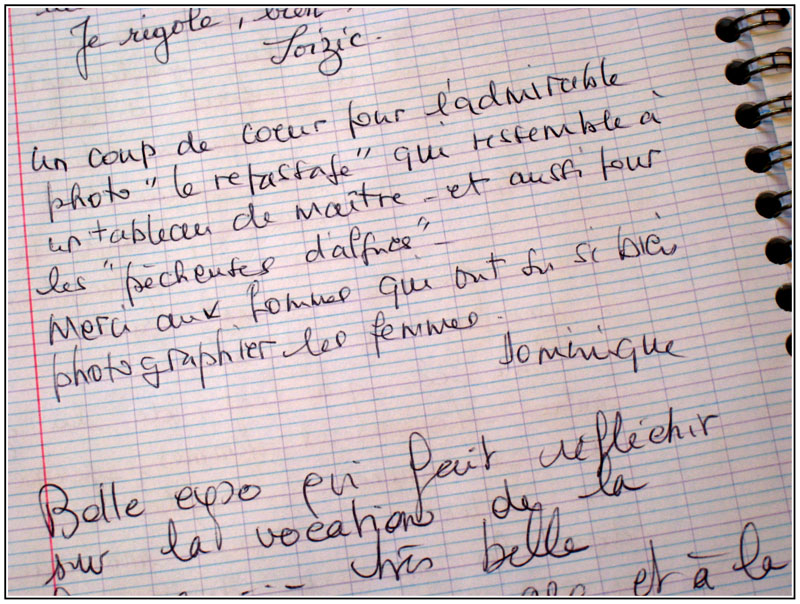 Je rigole, bien
Soizic.
un coup de coeur pour l'admirable
photo "le repassage" qui ressemble à
un tableau de maître - et aussi pour
les "pêcheuses d'algues" -
Merci aux hommes qui ont su si bien
photographier les femmes.
Dominique
Belle expo qui fait réfléchir
sur la vocation de la
très belle
et à la